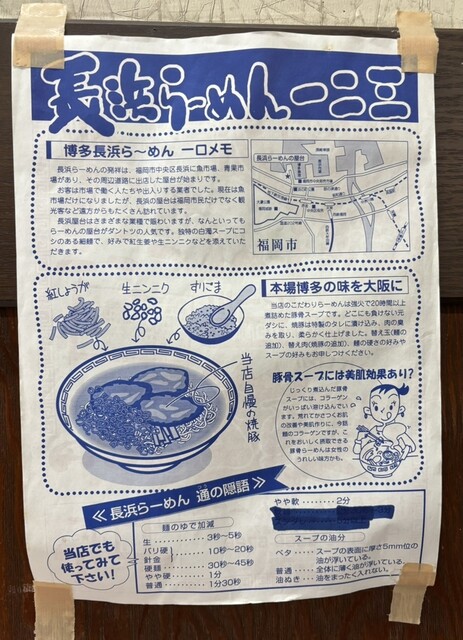 長浜らーめん一二三
博多長浜ら～めん 一口メモ
長浜らーめんの発祥は、福岡市中央区長浜に魚市場、青果市
場があり、その周辺道路に出店した屋台が始まりです。
お客は市場で働く人たちや出入りする業者でした。現在は魚
市場だけになりましたが、長浜の屋台は福岡市民だけでなく観
光客など遠方からもたくさん訪れています。
長浜屋台はさまざまな業種で賑わいますが、なんといっても
らーめんの屋台がダントツの人気です。独特の白濁スープにコ
シのある細麺で、好みで紅生姜や生ニンニクなどを添えていた
だきます。
長浜らーめんの屋台
福岡市
紅しょうが
生ニンニク
すりごま
当店自慢の焼豚
本場博多の味を大阪に
当店のこだわりらーめんは強火で20時間以上
煮詰めた豚骨スープです。どこにも負けない元
ダシに、焼豚は特製のタレに漬け込み、肉の臭
みを取り、柔らかく仕上げました。替え玉(麺の
追加)、替え肉(焼豚の追加)、麺の硬さの好みや
スープの好みもお申しつけください。
豚骨スープには美肌効果あり?
じっくり煮込んだ豚骨
スープには、コラーゲン
がいっぱい溶け込んでいま
す。荒れてかさつくお肌
の改善や美肌作りに、今話
題のコラーゲンですが、こ
れをおいしく摂取できる
豚骨らーめんは女性の
うれしい味方かも。
≪長浜らーめん 通の隠語≫
当店でも
使ってみて
下さい!
麺のゆで加減
生 3秒～5秒
バリ硬
針金 10秒～20秒
硬麺 30秒～45秒
やや硬 1分
普通 1分30秒
やや軟 2分
スープの油分
ベタ スープの表面に厚さ5mm位の
油が浮いている。
普通 全体に薄く油が浮いている。
油ぬき 油をまったく入れない。